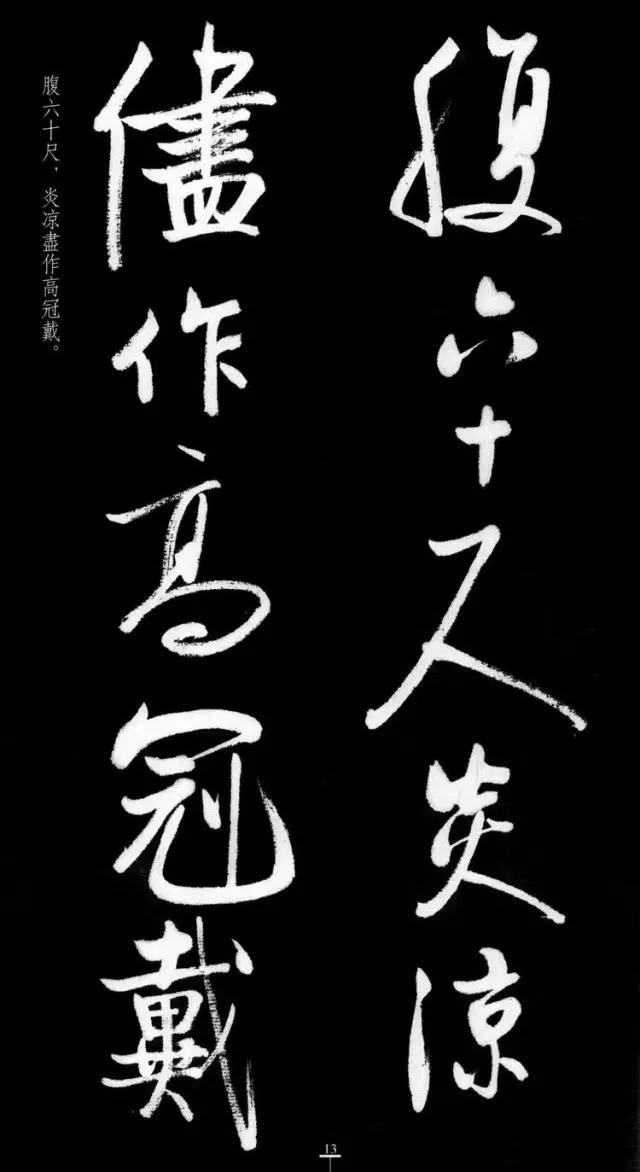 腹六十尺炎涼
儘作高冠戴
腹六十尺，炎凉盡作高冠戴。
13